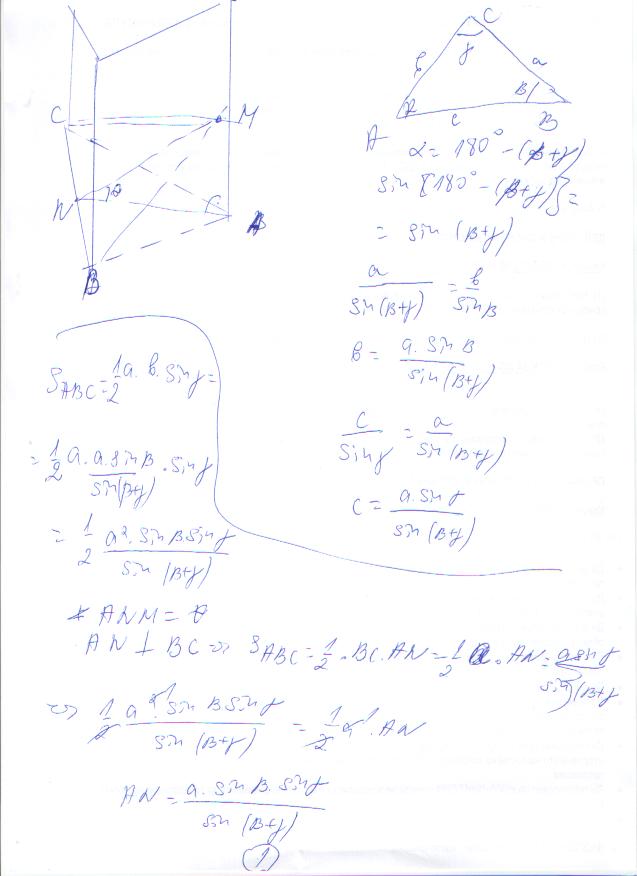 C
M
N
θ
A
B
C
γ
b
a
α
β
A
c
B
α = 180° - (β+γ)
sin [180° - (β+γ)] =
= sin (β+γ)
a / sin(β+γ) = b / sin β
b = a. sin β / sin(β+γ)
c / sin γ = a / sin(β+γ)
c = a. sin γ / sin (β+γ)
S_ABC = 1/2 a. b. sin γ =
= 1/2 a. a. sin β / sin(β+γ) . sin γ
= 1/2 a². sin β sin γ / sin (β+γ)
∢ ANM = θ
AN ⊥ BC => S_ABC = 1/2 . BC. AN = 1/2 a. AN = a sin γ / sin (β+γ
=> 1/2 a². sin β sin γ / sin (β+γ) = 1/2 a. AN
AN = a. sin β. sin γ / sin (β+γ)
1